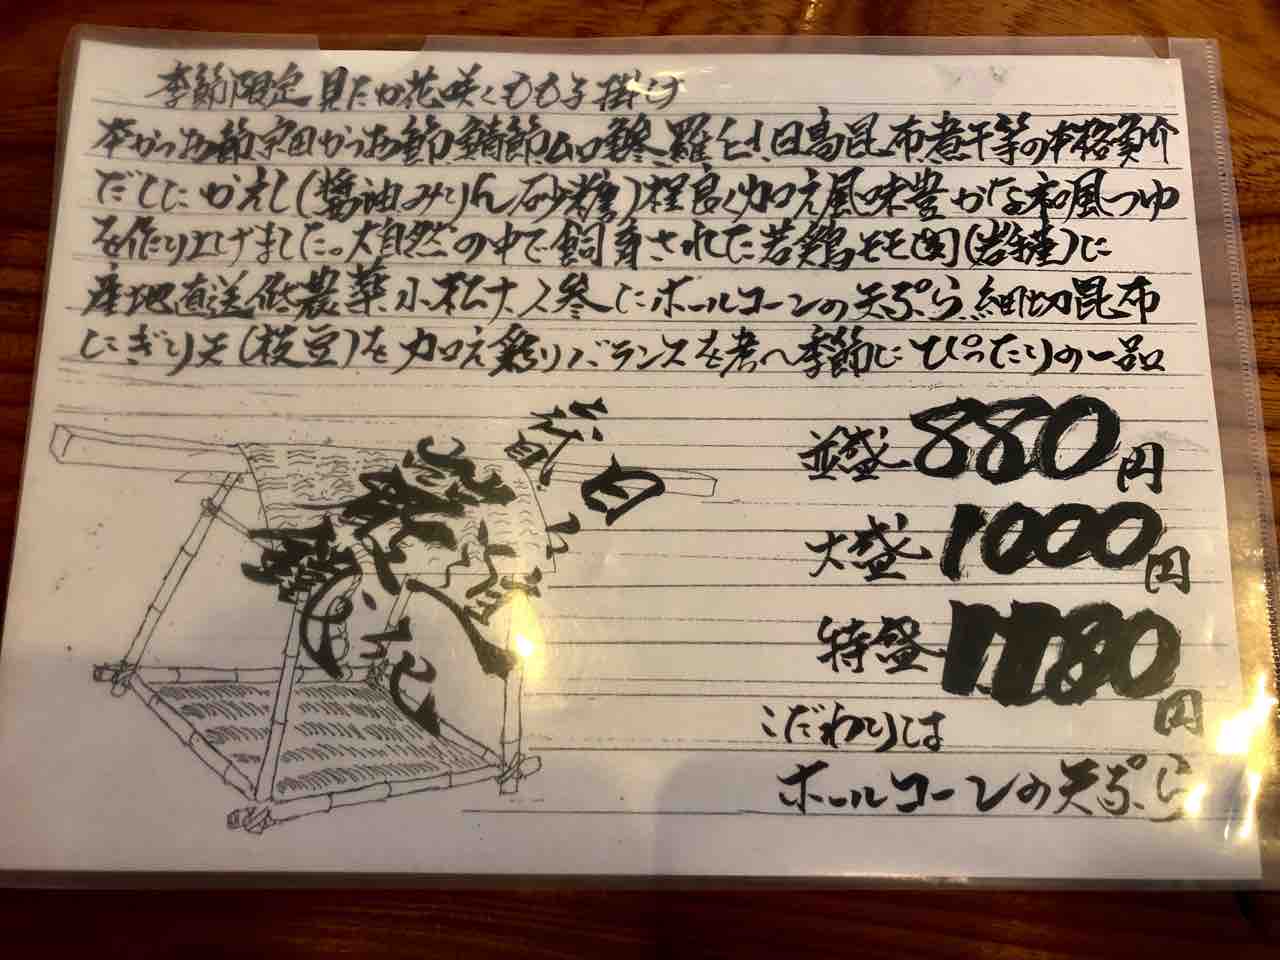 季節限定 見たか花咲くもも子掛け
本かつお節宗田かつお節、鯖節、山口鯵、羅臼、日高昆布、煮干等の本格魚介
だしに かえし(醤油みりん砂糖)程良く加え風味豊かな和風つゆ
を作り上げました。大自然の中で飼育された若鶏モモ肉(岩手産)に
産地直送低農薬小松ナ人参にホールコーンの天ぷら、細切昆布
にぎり天(枝豆)を加え彩りバランスを考へ季節にぴったりの一品
並盛 880円
大盛 1000円
特盛 1180円
こだわりは
ホールコーンの天ぷら